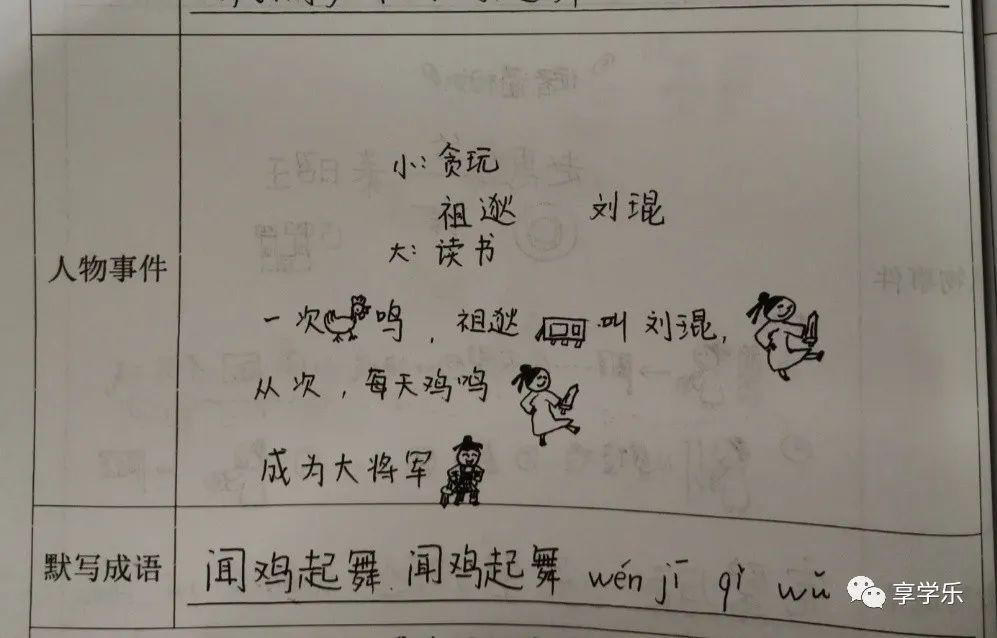 小：贪玩
祖逖 刘琨
大：读书
人物事件
一次鸣，祖逖叫刘琨，
从次，每天鸡鸣
成为大将军
默写成语
闻鸡起舞 闻鸡起舞 wén jī qǐ wǔ
享学乐